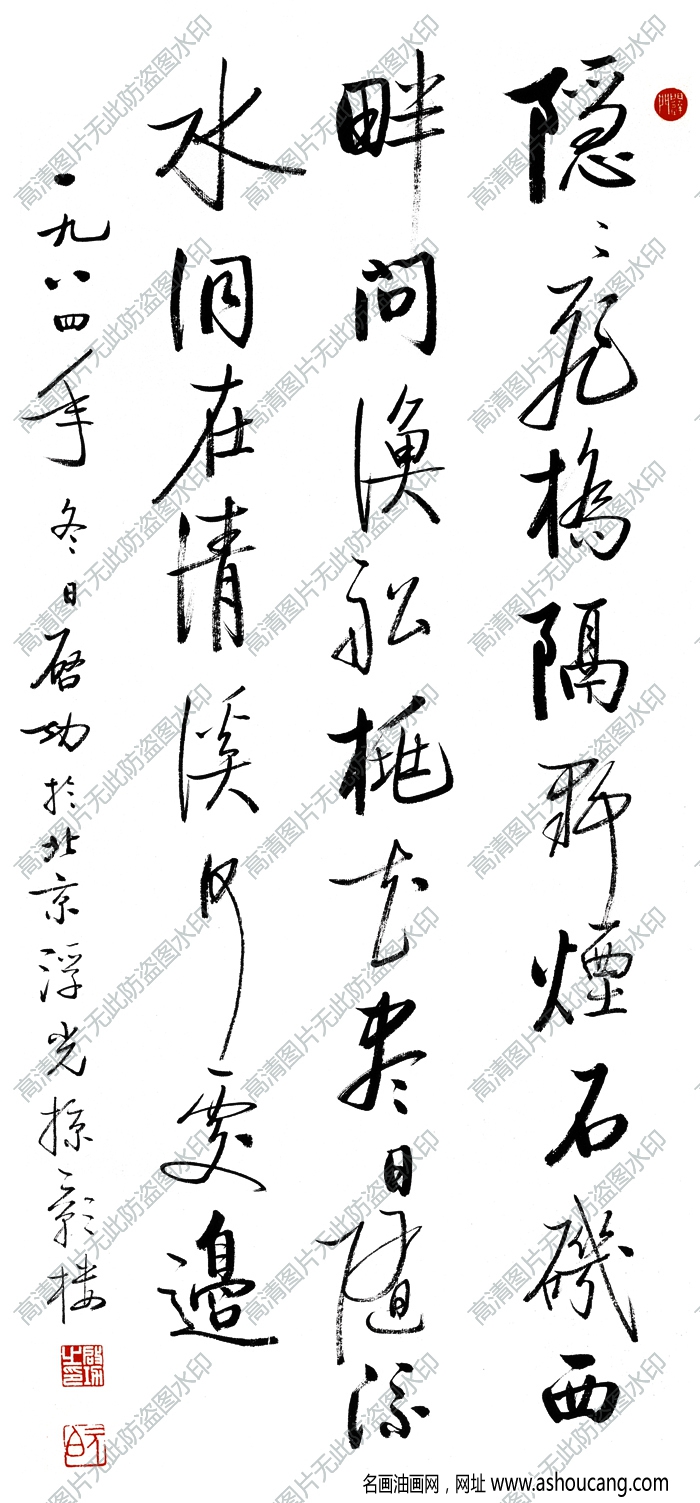 隐〻飛橋隔野煙石磯西
畔問漁船桃花盡日随流
水洞在清溪何處邊
一九八四年冬日启功於北京浮光掠影樓
啓功之印
元白
名画油画网，网址 www.ashoucang.com
高清图片无此防盗图水印